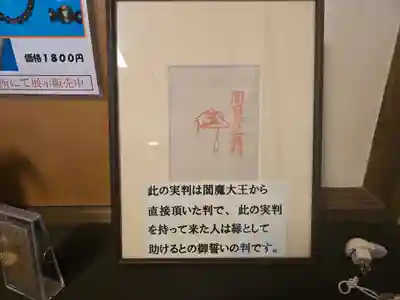 価格1800円
所にて展示販売中
此の実判は閻魔大王から
直接頂いた判で、此の実判
を持って来た人は縁として
助けるとの御誓いの判です。